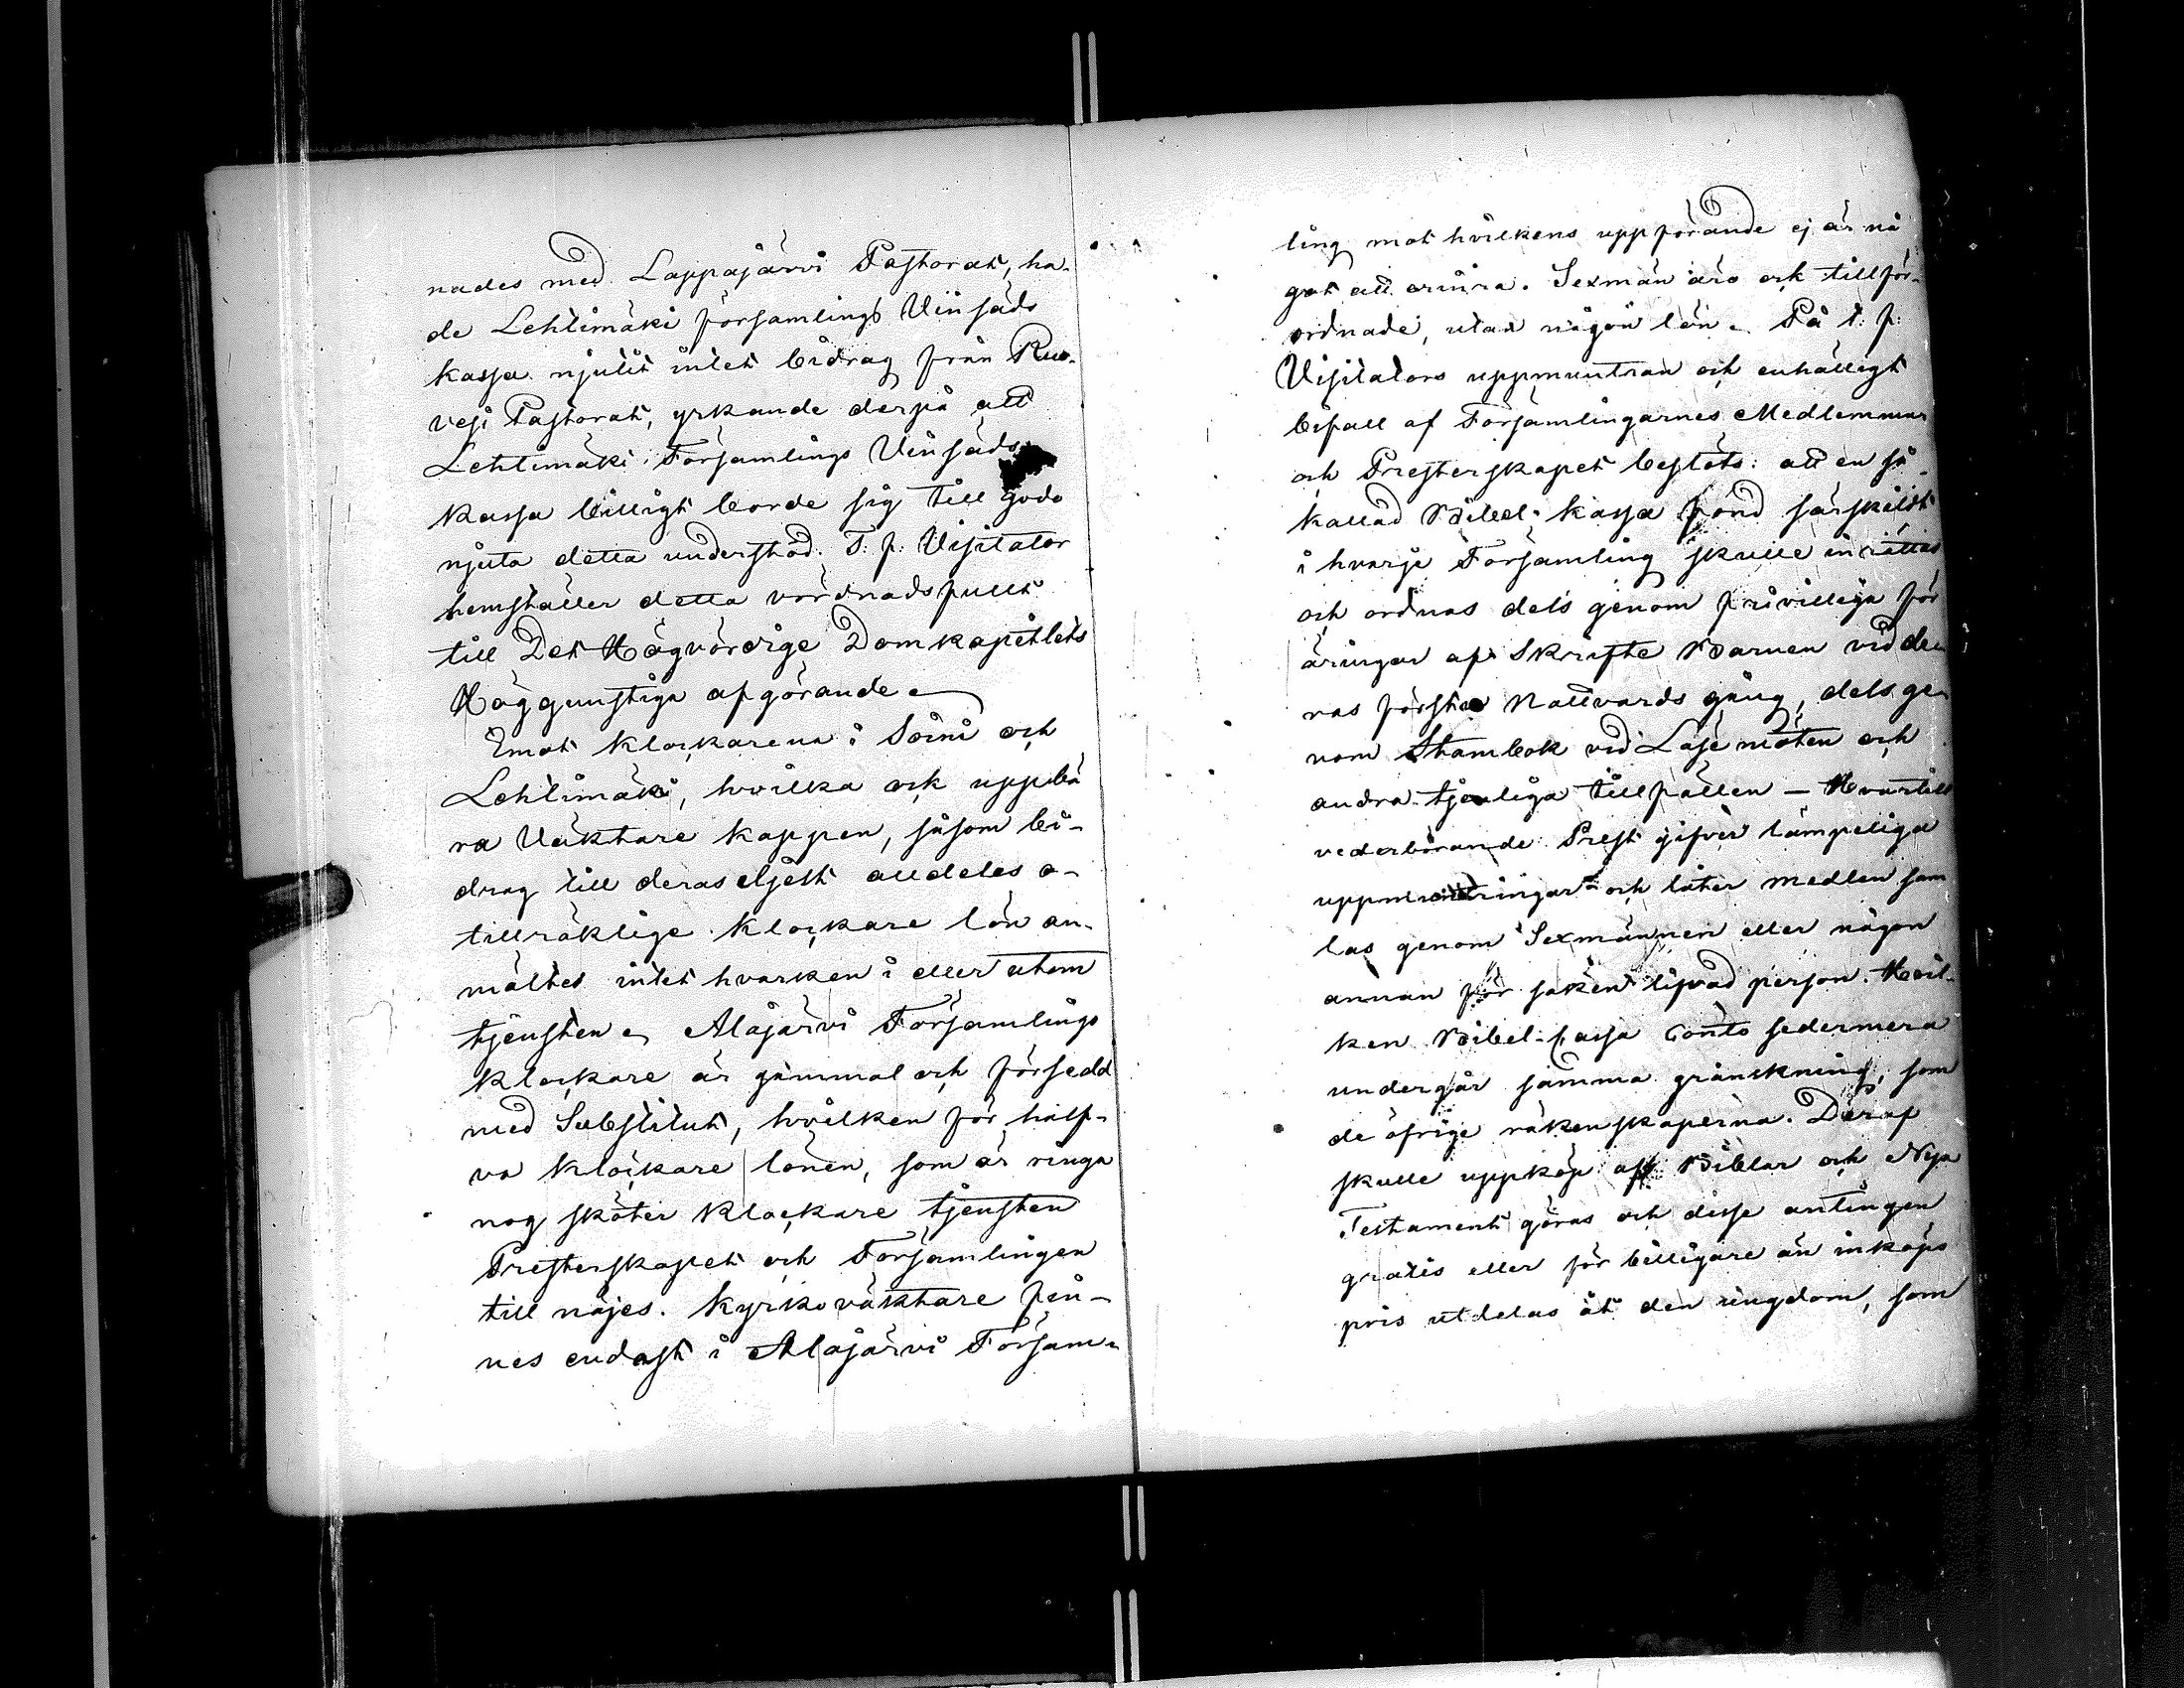 nades med Lappajärvi Pastorat, ha-
de Lehtimäki församlings Vinsäds
kassa njutit intet bidrag från Ruo-
vesi Pastorat, yrkande derpå att
Lehtimäki Församlings Vinsäds
kassa billigt borde sig till godo
njuta detta understöd. T. f. Visitator
hemställer detta vördnadsfullt
till Det Högvördige Domkapitlets
Höggunstiga afgörande.
Emot klockarena i Soini och
Lehtimäki, hvilka ock uppbä
ra Väktare kappen, såsom bi-
drag till deras eljest alldeles o-
tillräklige klockare lön an-
mältes intet hvarken i eller utom
tjensten. Alajärvi Församlings
klockare är gammal och försedd
med Substitut, hvilken för half-
va klockare lönen, som är ringa
nog sköter klockare tjensten
Presterskapet och Församlingen
till nöjes. Kyrkoväktare fin-
nes endast i Alajärvi Försam-
ling mot hvilkens uppförande ej är nå
got att erinra. Sexmän äro ock tillför-
ordnade, utan någon lön. På t. f.
Visitators uppmuntran och enhälligt
bifall af Församlingarnes Medlemmar
och Presterskapet beslöts: att en så
kallad Bibel-kassa fond särskildt
i hvarje Församling skulle inrättas
och ordnas dels genom frivilliga för
äringar af Skrifte Barnen vid de
ras första Nattvards gång, dels ge-
nom Stambok vid Läse möten och
andra tjenliga tillfällen – Hvartill
vederbörande Prest gifver lämpeliga
uppmuntringar och låter medlen sam
las genom Sexmännen eller någon
annan för saken lifvad person. Hvil-
ken Bibel-cassa Conto sedermera
undergår samma granskning, som
de öfrige räkenskaperna. Däraf
skulle uppköp af Biblar och Nya
Testament göras och disse antingen
gratis eller för billigare än inköps
pris utdelas åt den ungdom, som